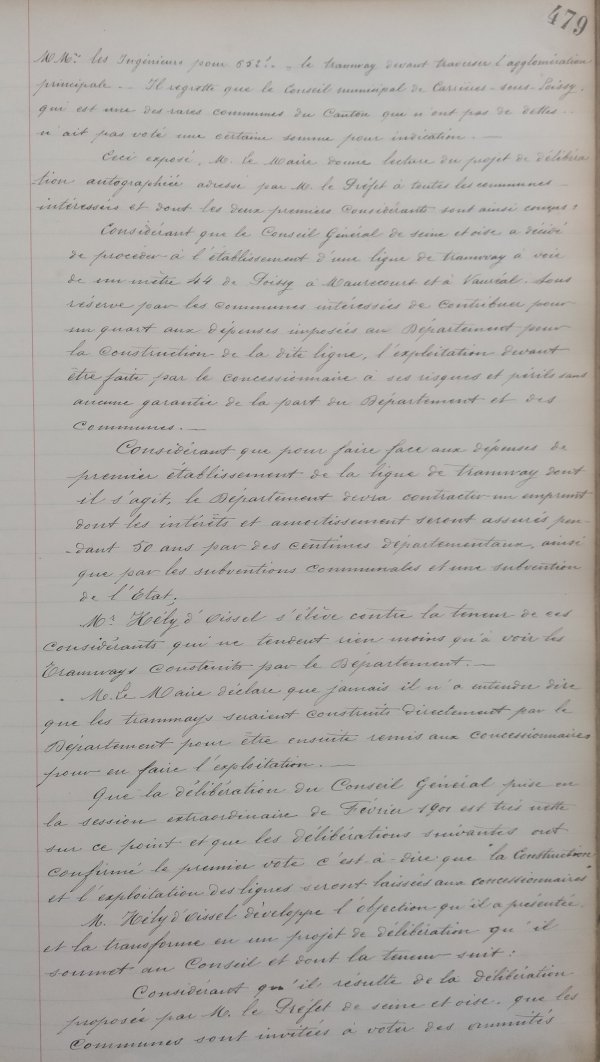 479
M.Mrs les Ingénieurs pour 652f. „ le tramway devant traverser l'agglomération
principale. — Il regrette que le Conseil municipal de Carrières-sous-Poissy,
qui est une des rares communes du Canton qui n'ont pas de dettes..
n'ait pas voté une certaine somme pour indication. —
Ceci exposé, M. le Maire donne lecture du projet de délibéra
tion autographiée adressé par M. le Préfet à toutes les communes
intéressées et dont les deux premiers Considérants sont ainsi conçus :
Considérant que le Conseil Général de seine et oise a décidé
de procéder à l'établissement d'une ligne de tramway à voie
de un mètre 44 de Poissy à Maurecourt et à Vauréal. sous
réserve par les communes intéressées de contribuer pour
un quart aux dépenses imposées au Département pour
la construction de la dite ligne, l'exploitation devant
être faite par le concessionnaire à ses risques et périls sans
aucune garantie de la part du Département et des
Communes. —
Considérant que pour faire face aux dépenses de
premier établissement de la ligne de tramway dont
il s'agit, le Département devra contracter un emprunt
dont les intérêts et amortissement seront assurés pen-
-dant 50 ans par des centimes départementaux, ainsi
que par les subventions communales et une subvention
de l'Etat;
Mr. Hély d'Oissel s'élève contre la teneur de ces
considérants qui ne tendent rien moins qu'à voir les
Tramways construits par le Département. —
M. Le Maire déclare que jamais il n'a entendu dire
que les tramways seraient construits directement par le
Département pour être ensuite remis aux concessionnaires
pour en faire l'exploitation. —
Que la délibération du Conseil Général prise en
la session extraordinaire de Février 1901 est très nette
sur ce point et que les délibérations suivantes ont
confirmé le premier vote c'est-à-dire que "la Construction
et l'exploitation des lignes seront laissées aux concessionnaires"
M. Hély d'Oissel développe l'objection qu'il a présentée
et la transforme en un projet de délibération qu'il
soumet au Conseil et dont la teneur suit :
Considérant qu'il résulte de la délibération
proposée par M. le Préfet de seine et oise. que les
Communes sont invitées à voter des annuités